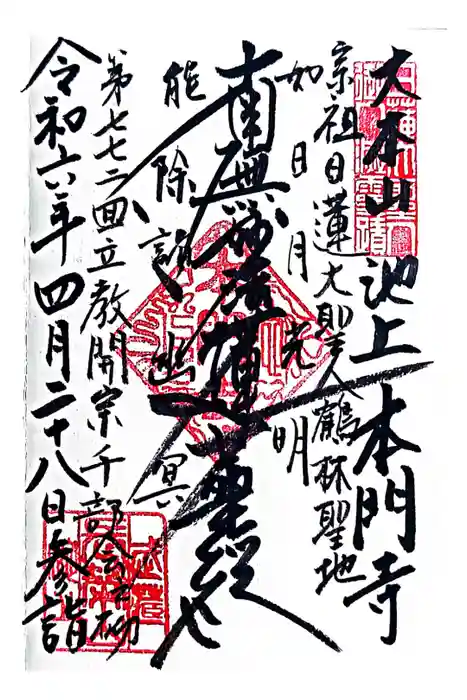 大本山 池上本門寺
宗祖日蓮大聖人鶴林聖地
如日月光明
南無妙法蓮華経
能除諸幽冥
第七七二回立教開宗千部会之砌
令和六年四月二十八日参詣